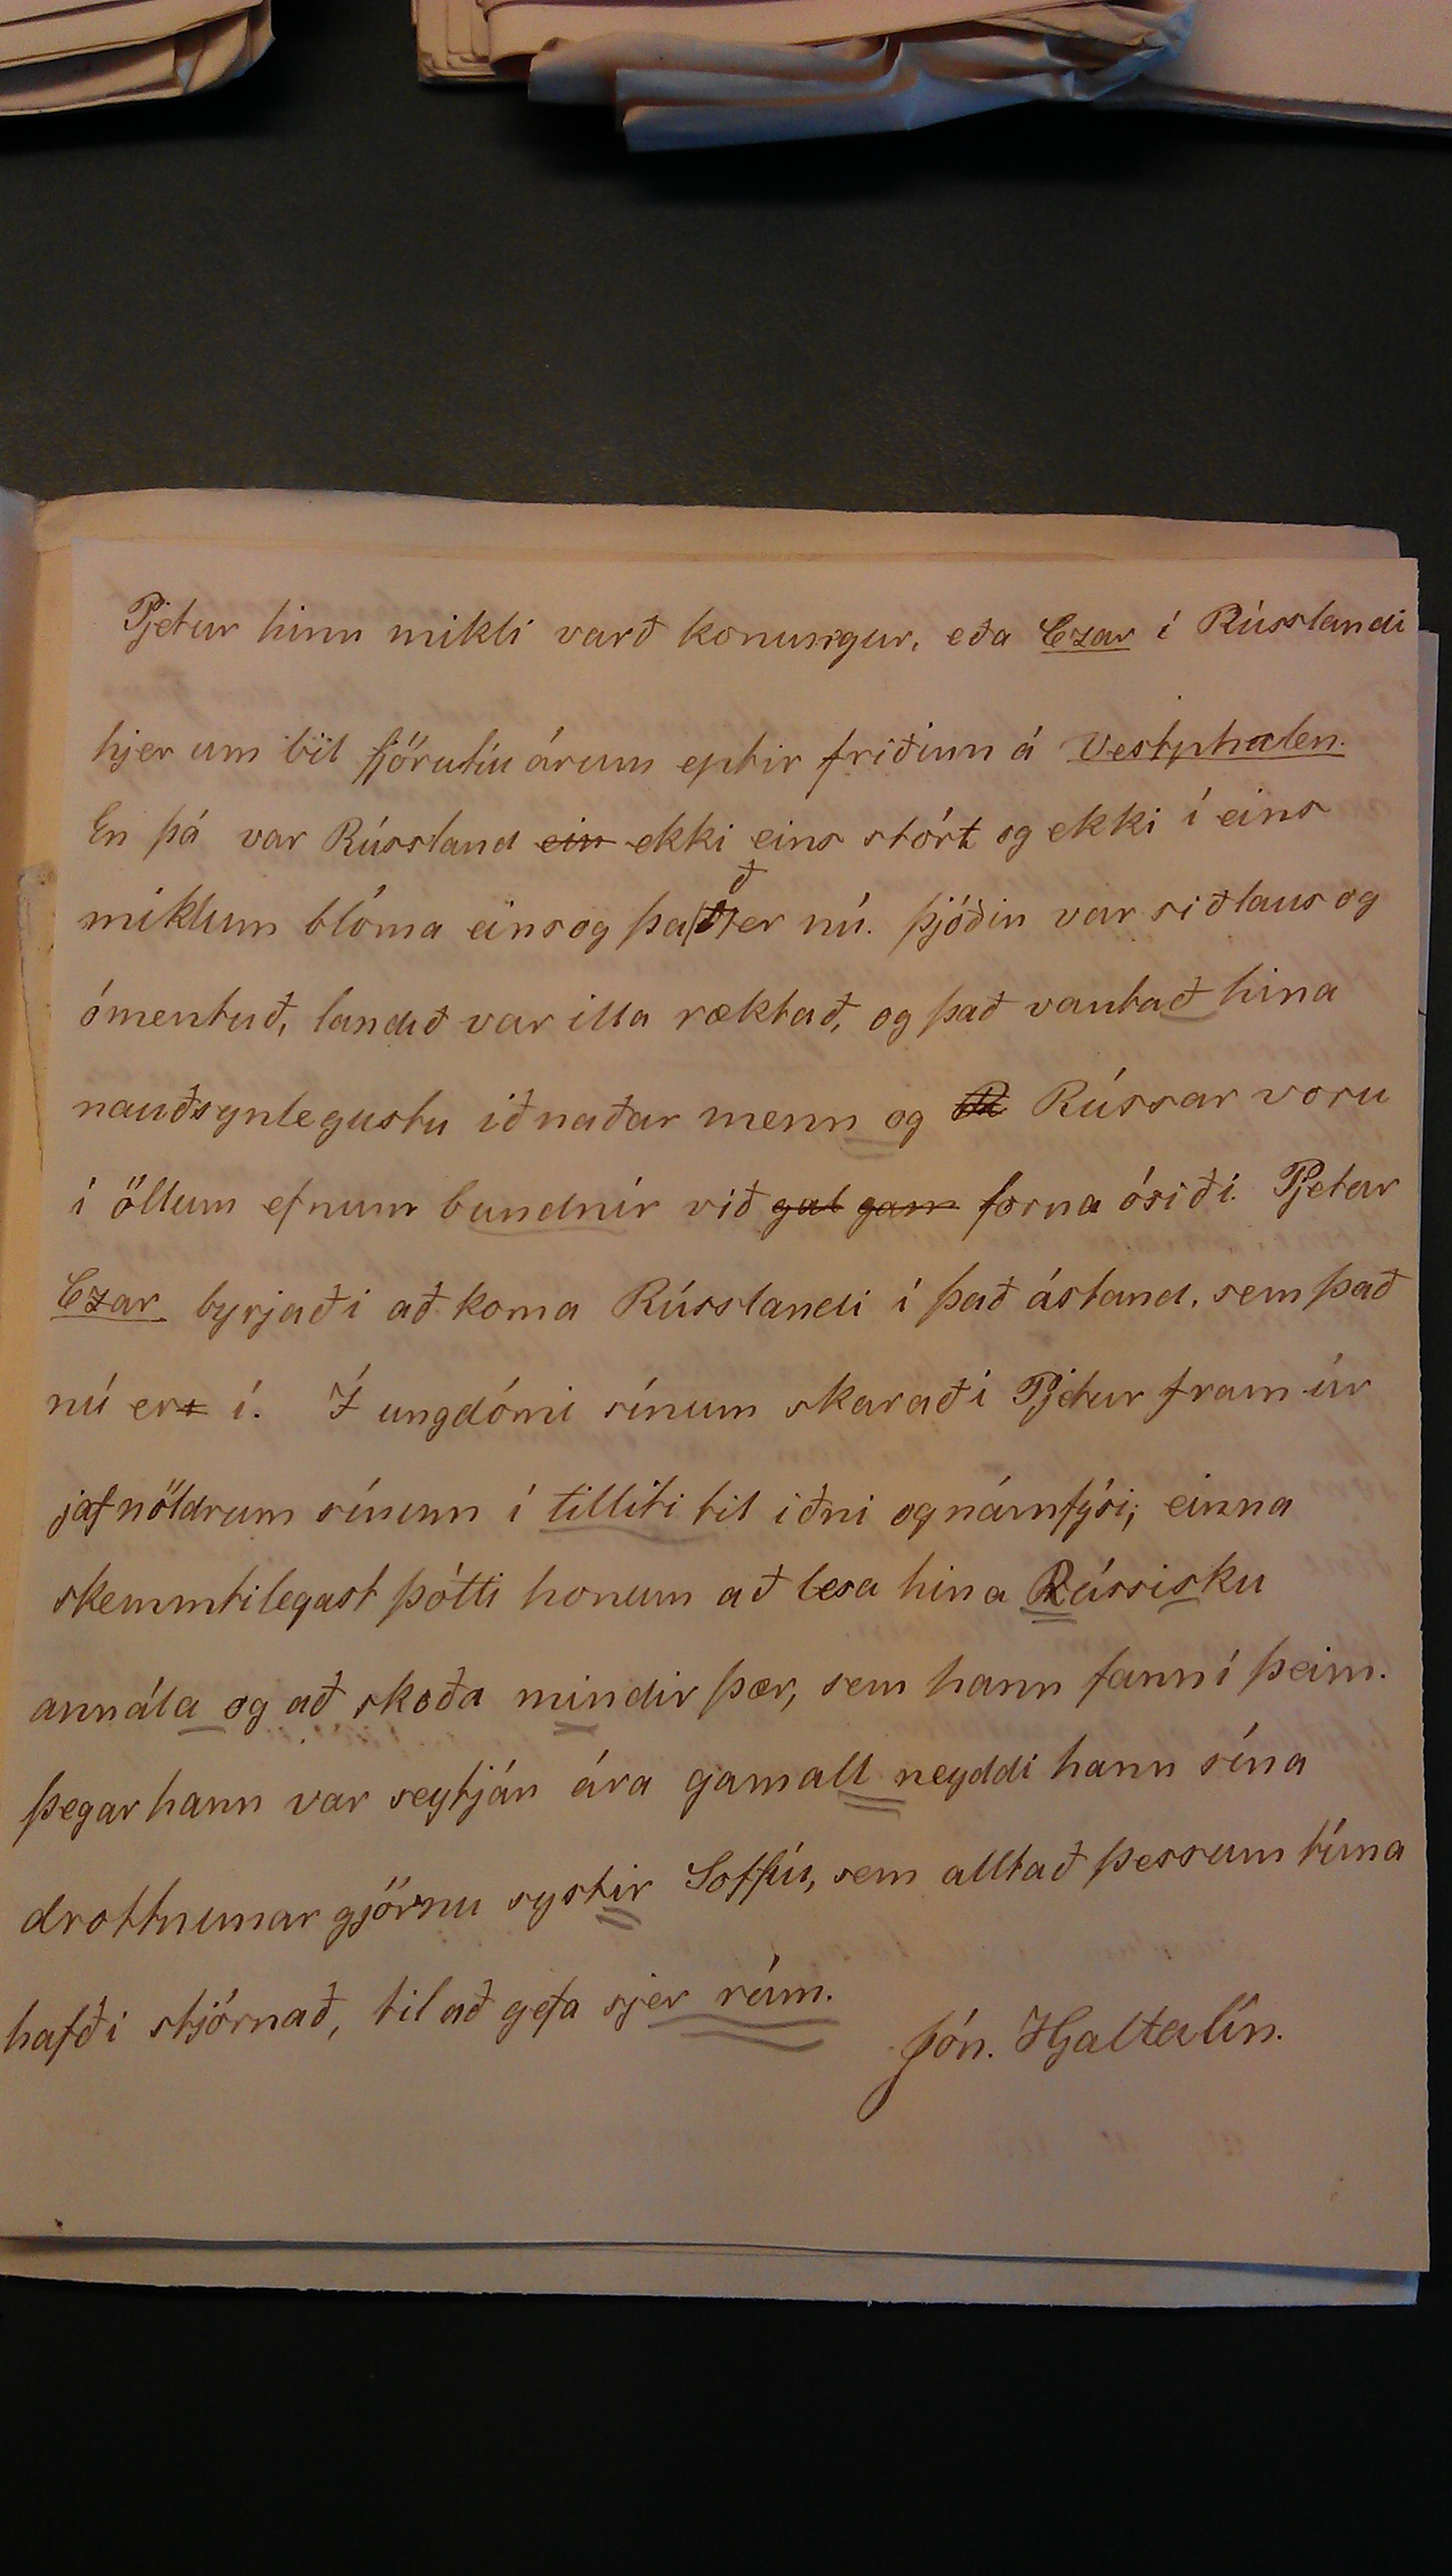 Pjetur hinn mikli varð konungur, eða Czar í Rússlandi
hjer um bil fjörutíu árum eptir friðinn á Vestphalen.
En þá var Rússland ein ekki eins stórt og ekki í eins
miklum blóma einsog það er nú. Þjóðin var siðlaus og
ómentuð, landið var illa ræktað, og það vantað hina
nauðsynlegustu iðnaðar menn og Rússar voru
í öllum efnum bundnir við gal gam forna ósiði. Pjetur
Czar byrjaði að koma Rússlandi í það ástand, sem það
nú er í. Í ungdómi sínum skaraði Pjetur fram úr
jafnöldrum sínum í tilliti til iðni og námfýsi; einna
skemmtilegast þótti honum að lesa hina Rússisku
annála og að skoða mindir þær, sem hann fann í þeim.
Þegar hann var seytján ára gamall neyddi hann sína
drottnunar gjörnu systir Soffíu, sem allt að þessum tíma
hafði stjórnað, til að gefa sjer rúm.
Jón. Hjaltalín.